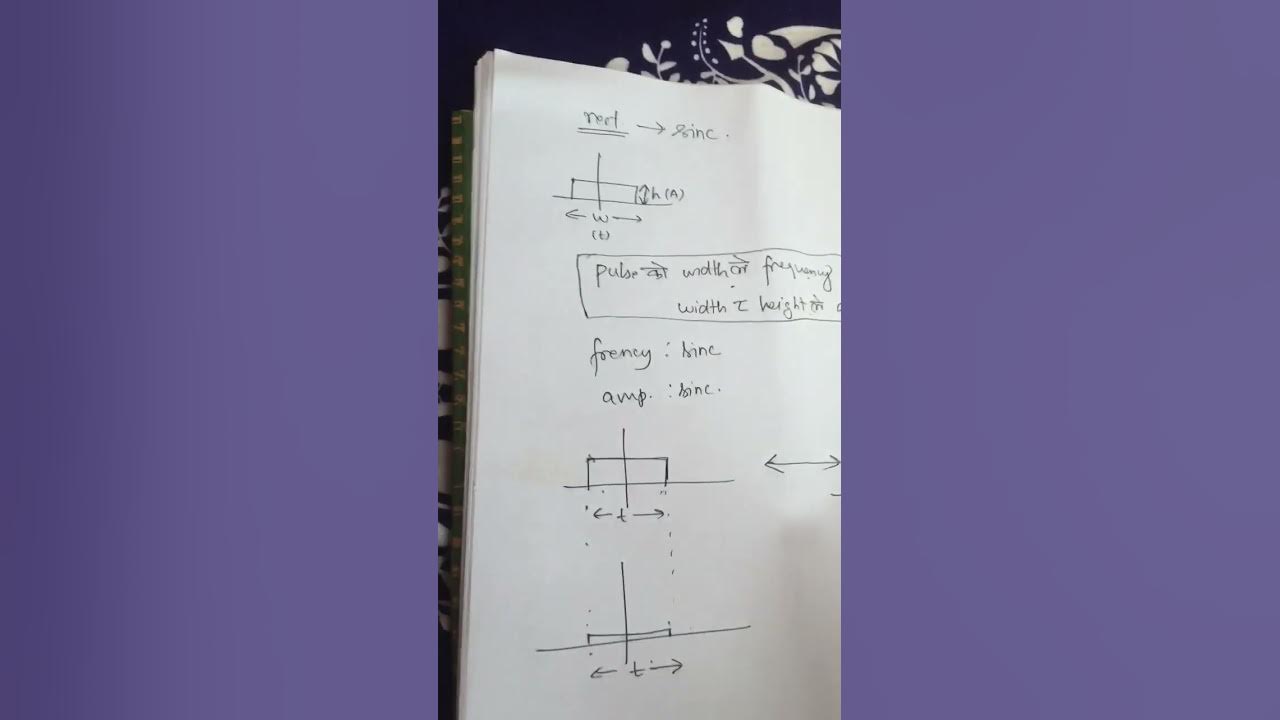 rect → sinc.
h (A)
← w →
(t)
pulse को width ले frequency
width र height ले
frency : sinc
amp. : sinc.
← t →
← t →